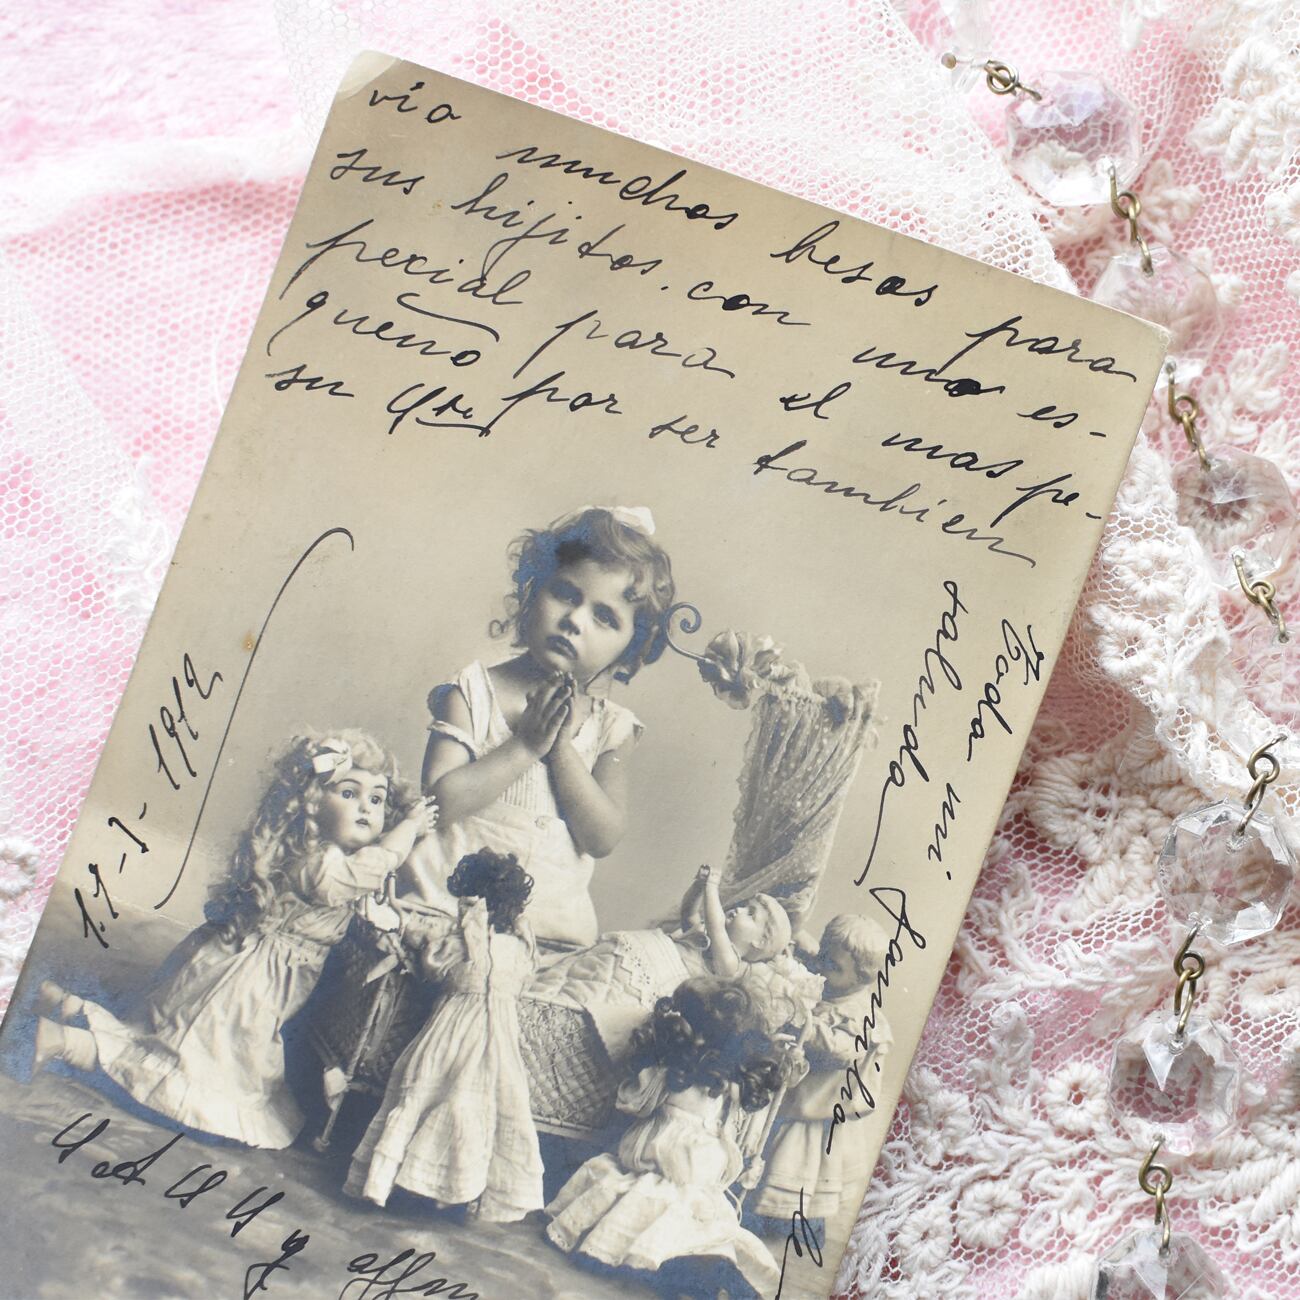 vio muchos besos para
sus hijitos. con uno es-
pecial para el mas pe-
queño por ser tambien
su
Toda mi familia
saluda
17-1-1912